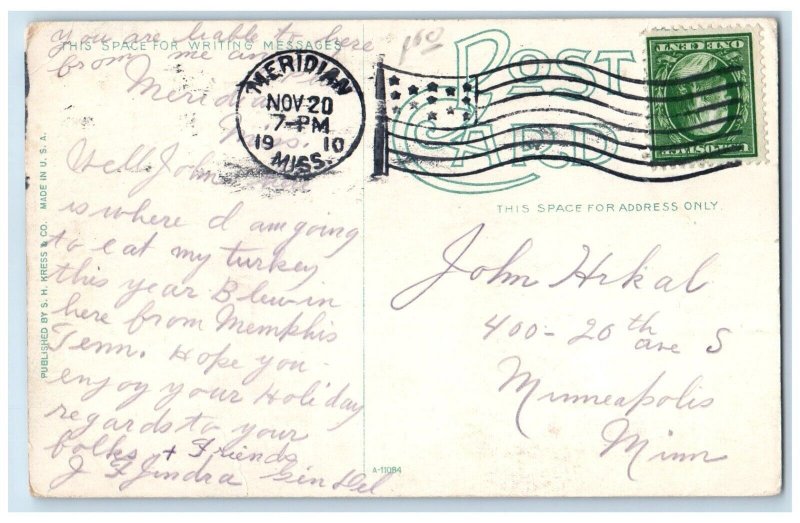 you are liable to here
THIS SPACE FOR WRITING MESSAGES
from me
Meridian
Miss.
Well John
is where I am going
to eat my turkey
this year Blew in
here from Memphis
Tenn. Hope you
enjoy your Holiday
regards to your
folks + Friends
J F Jindra Gen Del
PUBLISHED BY S. H. KRESS & CO. MADE IN U. S. A.
MERIDIAN
NOV 20
7-PM
19 10
MISS.
POST
CARD
ONE CENT
THIS SPACE FOR ADDRESS ONLY.
John Hrkal
400-20th ave S
Minneapolis
Minn
A-11084